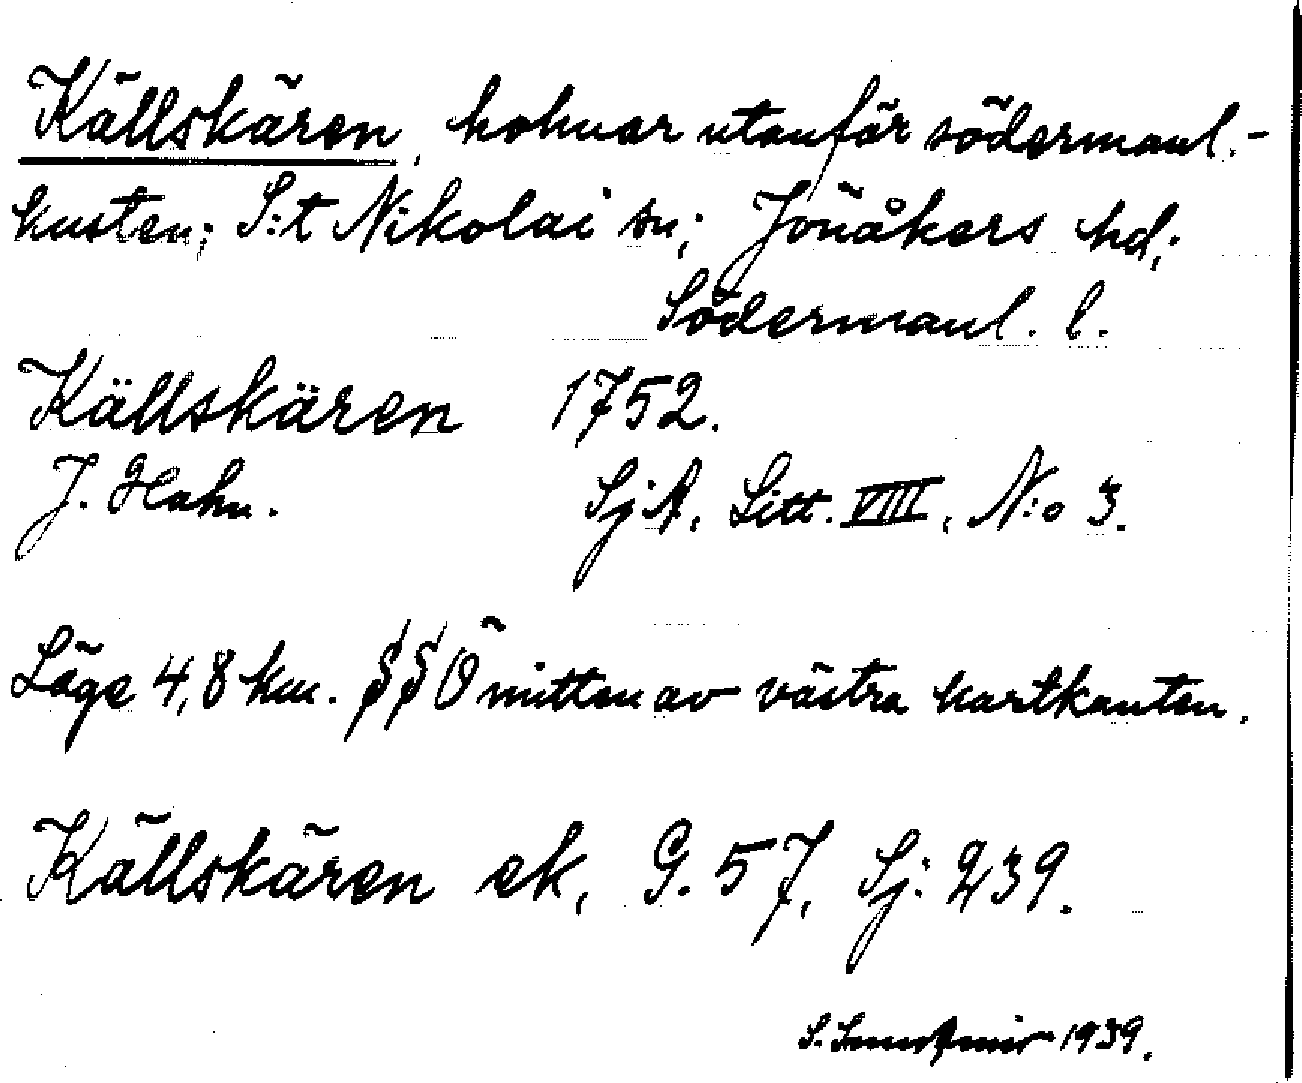 Källskären, holmar utanför södermanl.-
kusten; S:t Nikolai sn; Jönåkers hd;
Södermanl. l.
Källskären 1752.
J. Hahn. SjA, Litt. VIII, N:o 3.
Läge 4,8 km. SSÖ mitten av västra kartkanten.
Källskären ek, G. 57, Sj: 239.
S. 1939.